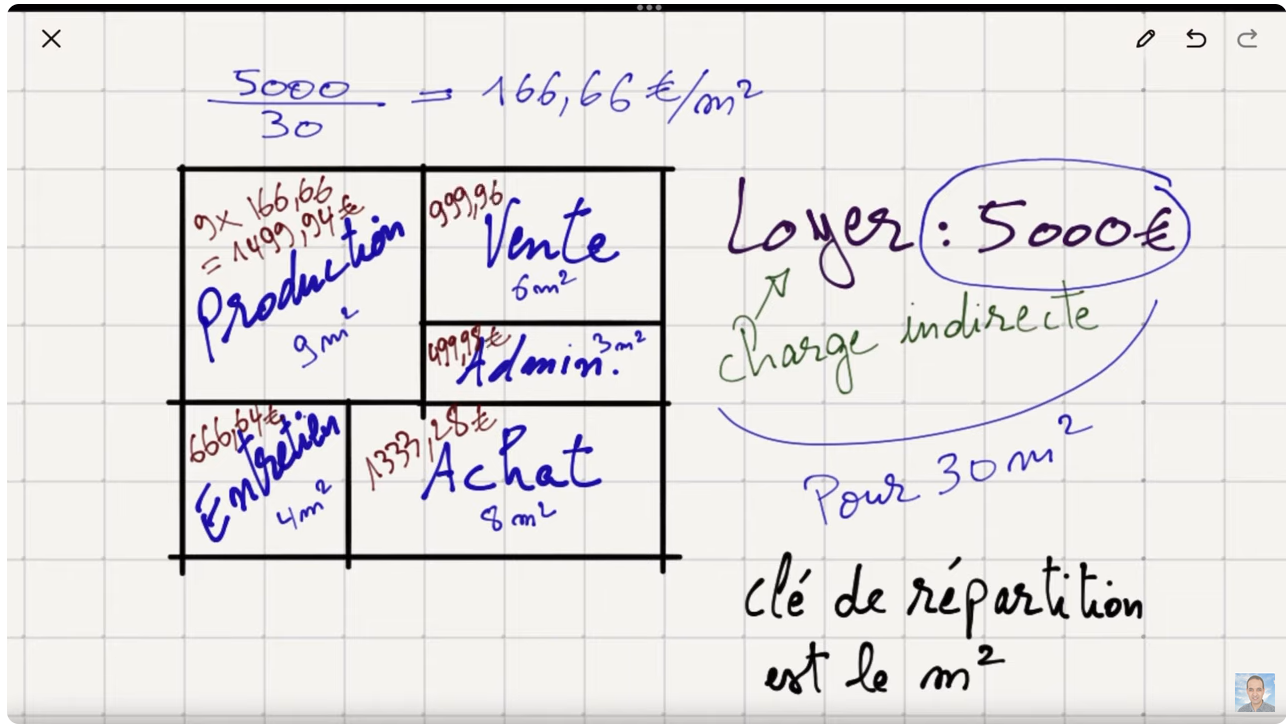 5000
30
= 166,66 €/m²
9 x 166,66
= 1499,94 €
Production
9m²
999,96
Vente
6m²
499,98 €
Admin. 3m²
666,64 €
Entretien
4m²
1333,28 €
Achat
8m²
Loyer : 5000 €
charge indirecte
Pour 30m²
clé de répartition
est le m²